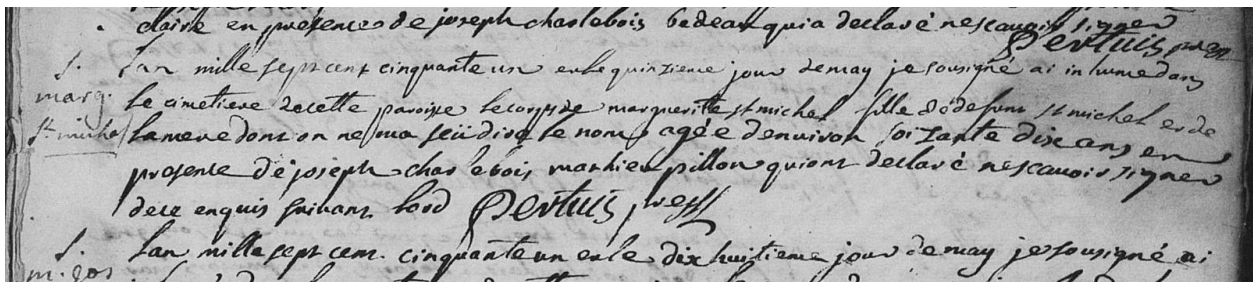 claire en présence de joseph charlebois bedeau qui a declaré nescauoir signer
Pertuis pretr
S. Lan mille sept cent cinquante un en le quinzieme jour de may je sousigné ai inhumé dans
marg. le cimetiere de cette paroisse le corps de marguerite st michel fille de defunt st michel et de
St michel la mere dont on ne ma seü dire le nom, agée denuiron soixante dix ans en
presence de joseph charlebois mathieu pillon qui ont declaré nescauoir signer
de ce enquis suiuant lord Pertuis pretr
S. Lan mille sept cent cinquante un en le dix huitieme jour de may je sousigné ai
m. jos